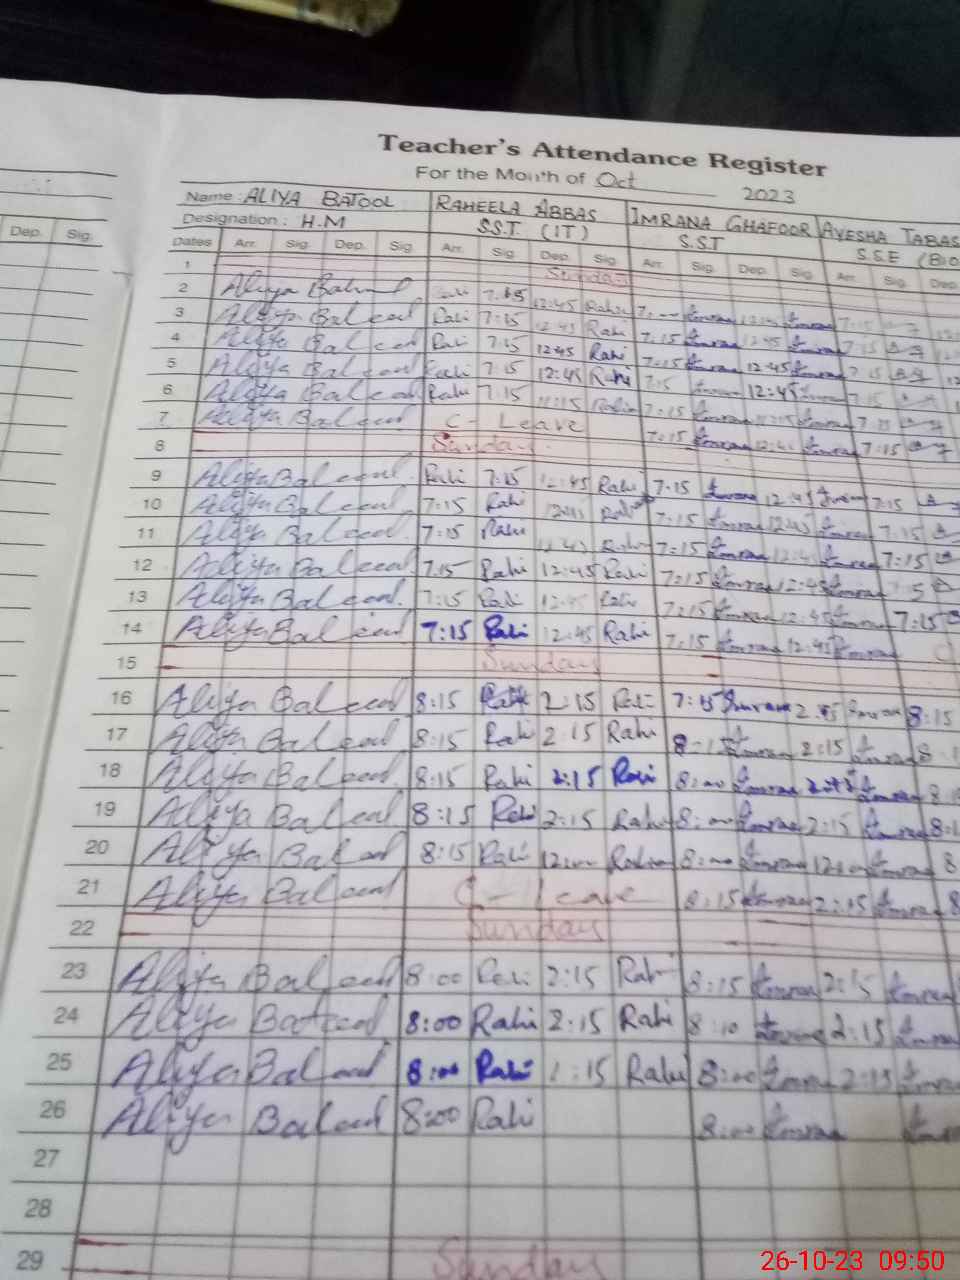 Teacher's Attendance Register
For the Month of Oct 2023
Name : ALIYA BATOOL RAHEELA ABBAS IMRANA GHAFOOR AYESHA TABAS
Designation : H.M S.S.T (IT) S.S.T S.S.E (BIO
Dep. Sig.
Dates Arr. Sig. Dep. Sig. Arr. Sig. Dep. Sig. Arr. Sig. Dep. Sig. Arr. Sig. Dep.
1 Sunday
2 Aliya Batool 7:15 12:45 Rahi
3 Aliya Batool Rahi 7:15 12:45 Rahi 7:15 Imrana 12:45 Imrana 7:15
4 Aliya Batool Rahi 7:15 12:45 Rahi 7:15 Imrana 12:45 Imrana 7:15
5 Aliya Batool Rahi 7:15 12:45 Rahi 7:15 Imrana 12:45 Imrana 7:15
6 Aliya Batool Rahi 7:15 11:15 7:15 Imrana Imrana 7:15
7 Aliya Batool C- Leave 7:15 Imrana Imrana 7:15
8 Sunday
9 Aliya Batool Rahi 7:15 12:45 Rahi 7:15 Imrana 12:45 Imrana 7:15
10 Aliya Batool 7:15 Rahi 12:45 Rahi 7:15 Imrana 12:45 Imrana 7:15
11 Aliya Batool 7:15 Rahi 12:45 Rahi 7:15 Imrana Imrana 7:15
12 Aliya Batool 7:15 Rahi 12:45 Rahi 7:15 Imrana 12:45 Imrana
13 Aliya Batool 7:15 Rahi 12:45 Rahi 7:15 Imrana 12:45 Imrana 7:15
14 Aliya Batool 7:15 Rahi 12:45 Rahi 7:15 Imrana 12:45 Imrana
15 Sunday
16 Aliya Batool 8:15 Rahi 2:15 Rahi Imrana Imrana 8:15
17 Aliya Batool 8:15 Rahi 2:15 Rahi 8:15 Imrana 2:15 Imrana
18 Aliya Batool 8:15 Rahi 2:15 Rahi 8:00 Imrana Imrana
19 Aliya Batool 8:15 Rahi 2:15 Rahi 8:00 Imrana 2:15 Imrana
20 Aliya Batool 8:15 Rahi 12:00 8:00 Imrana 12:00 Imrana 8
21 Aliya Batool C- Leave 8:15 Imrana 2:15 Imrana 8
22 Sunday
23 Aliya Batool 8:00 Rahi 2:15 Rahi 8:15 Imrana 2:15 Imrana
24 Aliya Batool 8:00 Rahi 2:15 Rahi 8:10 Imrana 2:15 Imrana
25 Aliya Batool 8:00 Rahi 1:15 Rahi 8:00 Imrana 2:15 Imrana
26 Aliya Batool 8:00 Rahi 8:00 Imrana
27
28
29 Sunday
26-10-23 09:50